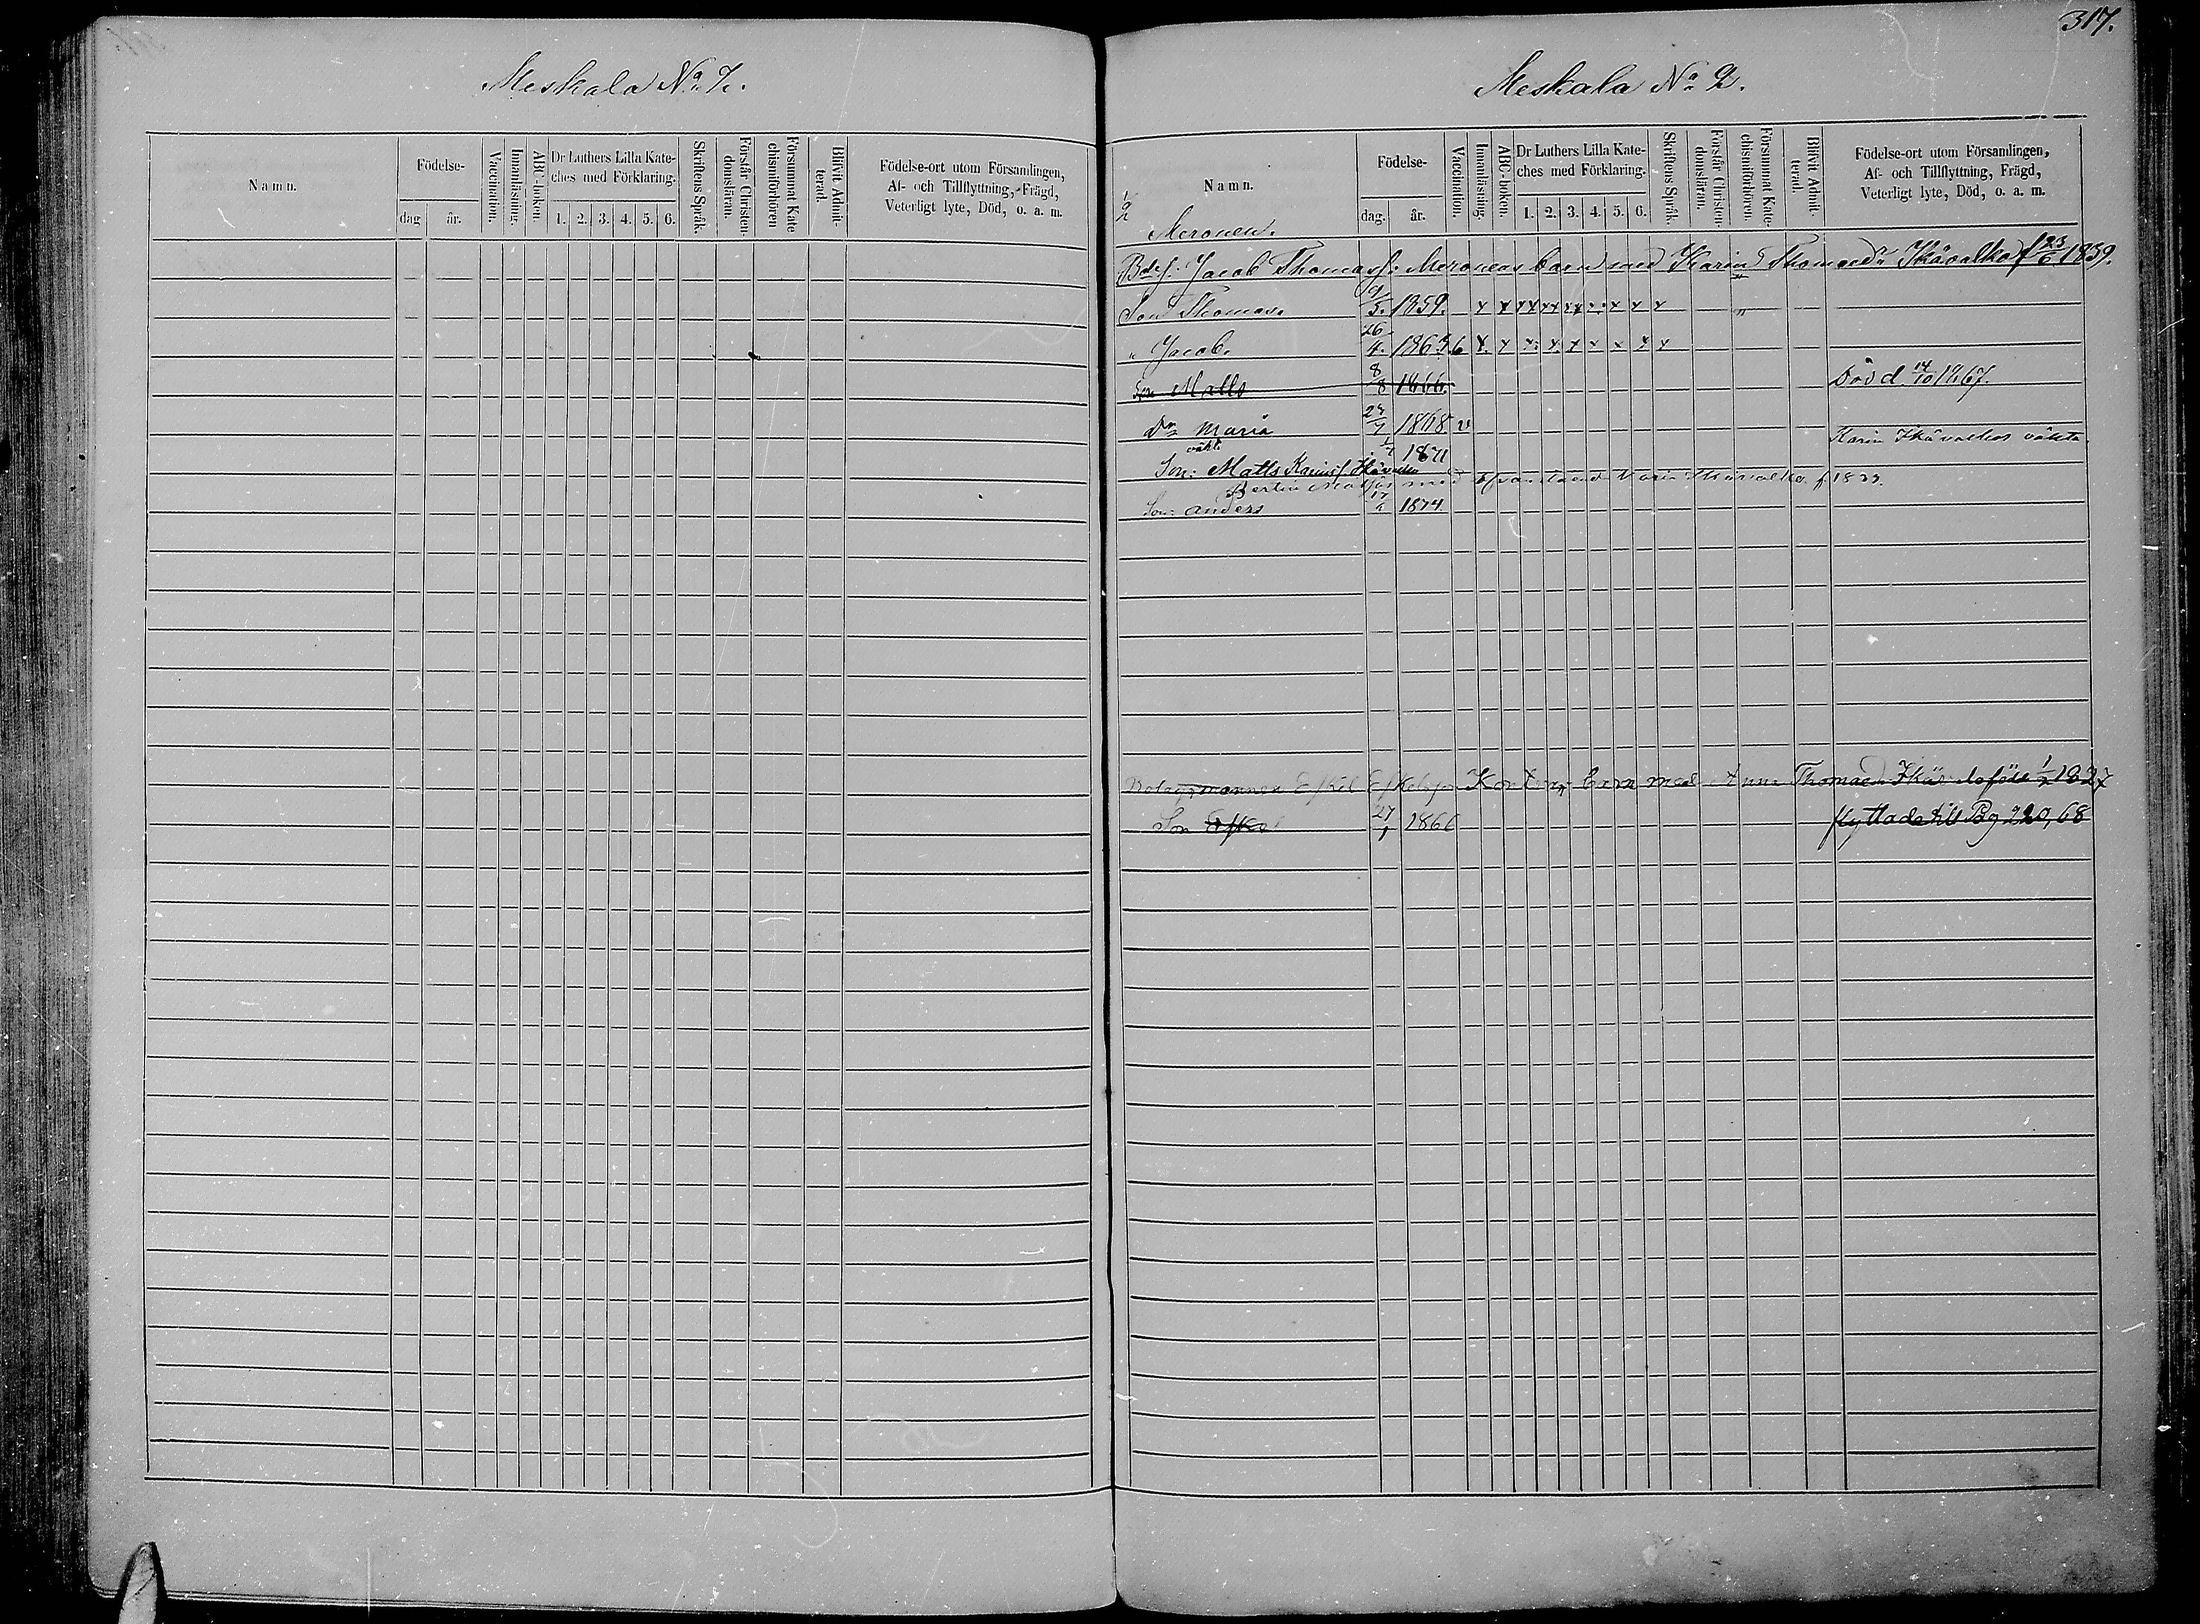 Meskala No 7.
Namn.
Födelse-
dag
år.
Vaccination.
Innanläsning.
ABC-boken.
Dr Luthers Lilla Kate-
ches med Förklaring.
1. 2. 3. 4. 5. 6.
Skriftens Språk.
Förstår Christen-
domsläran.
Försummat Kate
chismiförhören
Blifvit Admit-
terad.
Födelse-ort utom Församlingen,
Af- och Tillflyttning, Frägd,
Veterligt lyte, Död, o. a. m.
317.
Meskala No 2.
Namn.
Födelse-
dag.
år.
Vaccination.
Innanläsning.
ABC-boken.
Dr Luthers Lilla Kate-
ches med Förklaring.
1. 2. 3. 4. 5. 6.
Skriftens Språk.
Förstår Christen-
domsläran.
Försummat Kate-
chismiförhören.
Blifvit Admit-
terad.
Födelse-ort utom Församlingen,
Af- och Tillflyttning, Frägd,
Veterligt lyte, Död, o. a. m.
1/2
Meronen.
Jacob Thomasf: Meronens barn med Karin Thomaed:r Ikävalko f 23/6 1839.
Son Thomas. 9/5. 1859.
" Jacob. 26/4. 1863.
Son Matts 8/8 1866. Död 14/10 1867.
Dr Maria 1868
Son: Matts 1/1 1871 Karin Ikävalkos oäkta
med Maria Ikävalko f 1833.
Son: Anders 17/1 1874
Bolagsmannen Eskel Eskelsson barn med Anna Thomaed Ikäv född 1/2 1827
Son Eskel 27/1 1866 flyttade till Pg 220, 68